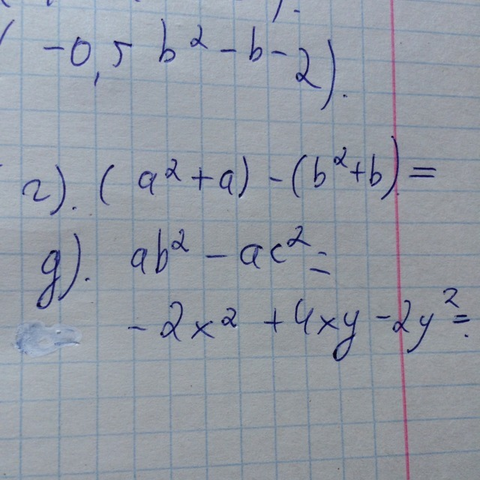 ).
-0,5 b² - b - 2).
г). (a² + a) - (b² + b) =
д). ab² - ac² =
- 2x² + 4xy - 2y² =